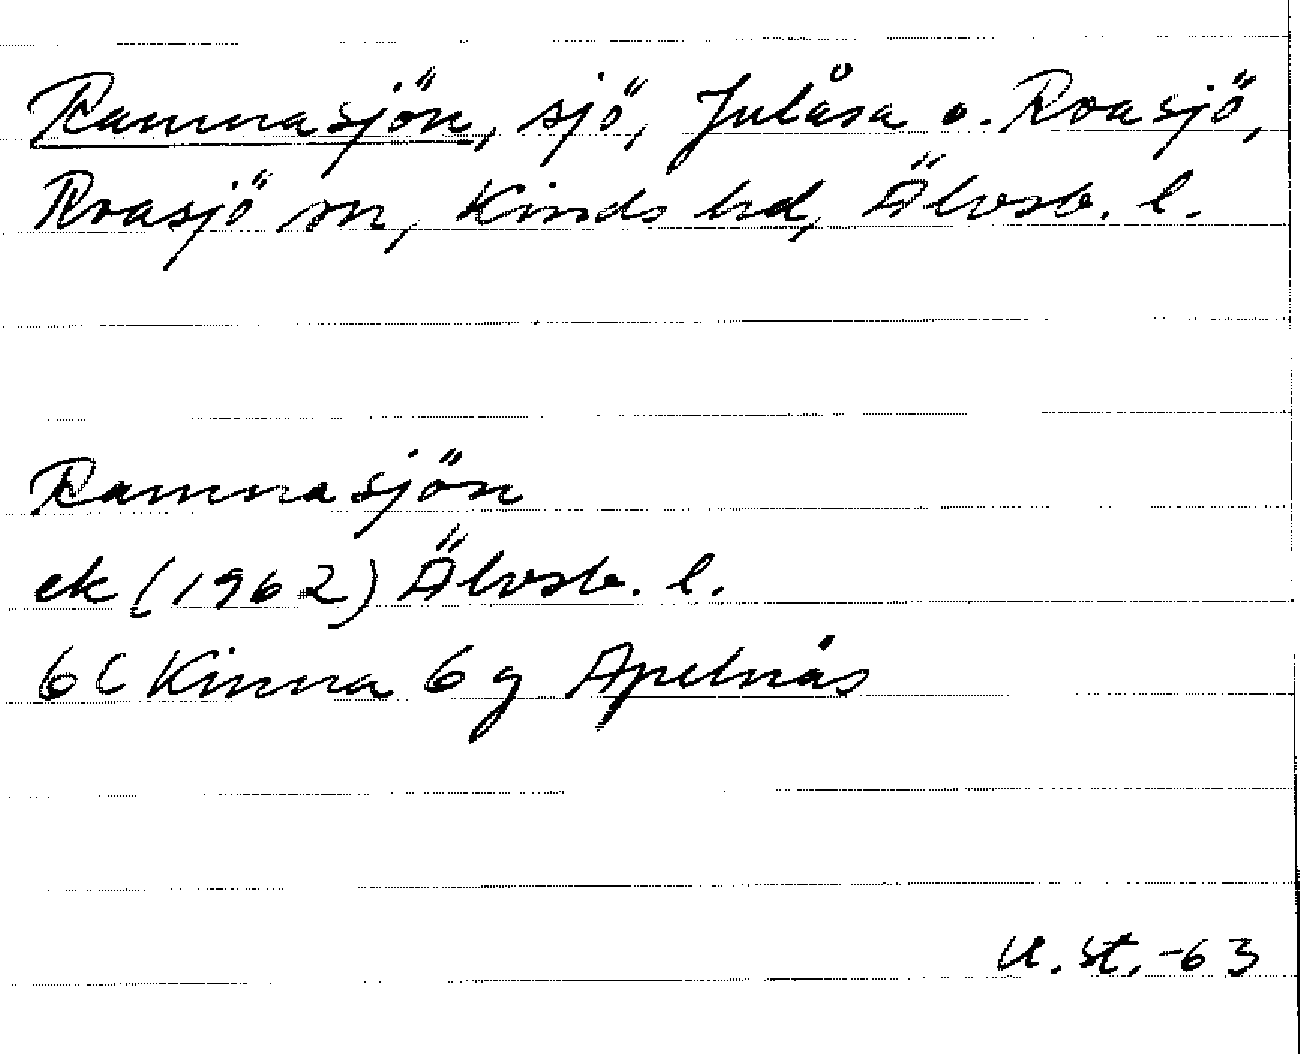 Ramnasjön, sjö, Julåsa o. Roasjö,
Roasjö sn, Kinds hd, Älvsb. l.
Ramnasjön
ek (1962) Älvsb. l.
6C Kinna 6 g Apelnäs
U. St. -63